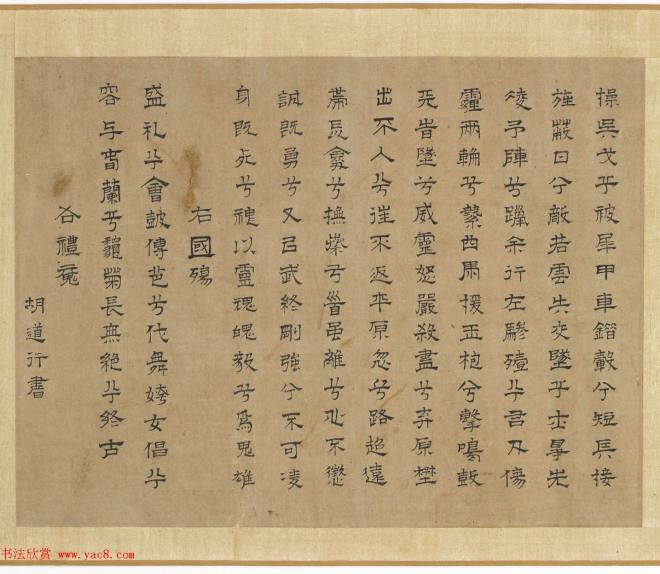 操吳戈兮被犀甲車錯轂兮短兵接
旌蔽日兮敵若雲矢交墜兮士爭先
凌予陣兮躐余行左驂殪兮右刃傷
霾兩輪兮縶四馬援玉枹兮擊鳴鼓
天時墜兮威靈怒嚴殺盡兮棄原壄
出不入兮往不返平原忽兮路超遠
帶長劍兮秦弓首雖離兮心不懲
誠既勇兮又以武終剛強兮不可凌
身既死兮神以靈魂魄毅兮爲鬼雄
右國殤
盛礼兮會鼓傳芭兮代舞姱女倡兮
容与春蘭兮秋菊長無絕兮終古
右禮魂
胡道行書
书法欣赏 www.yac8.com